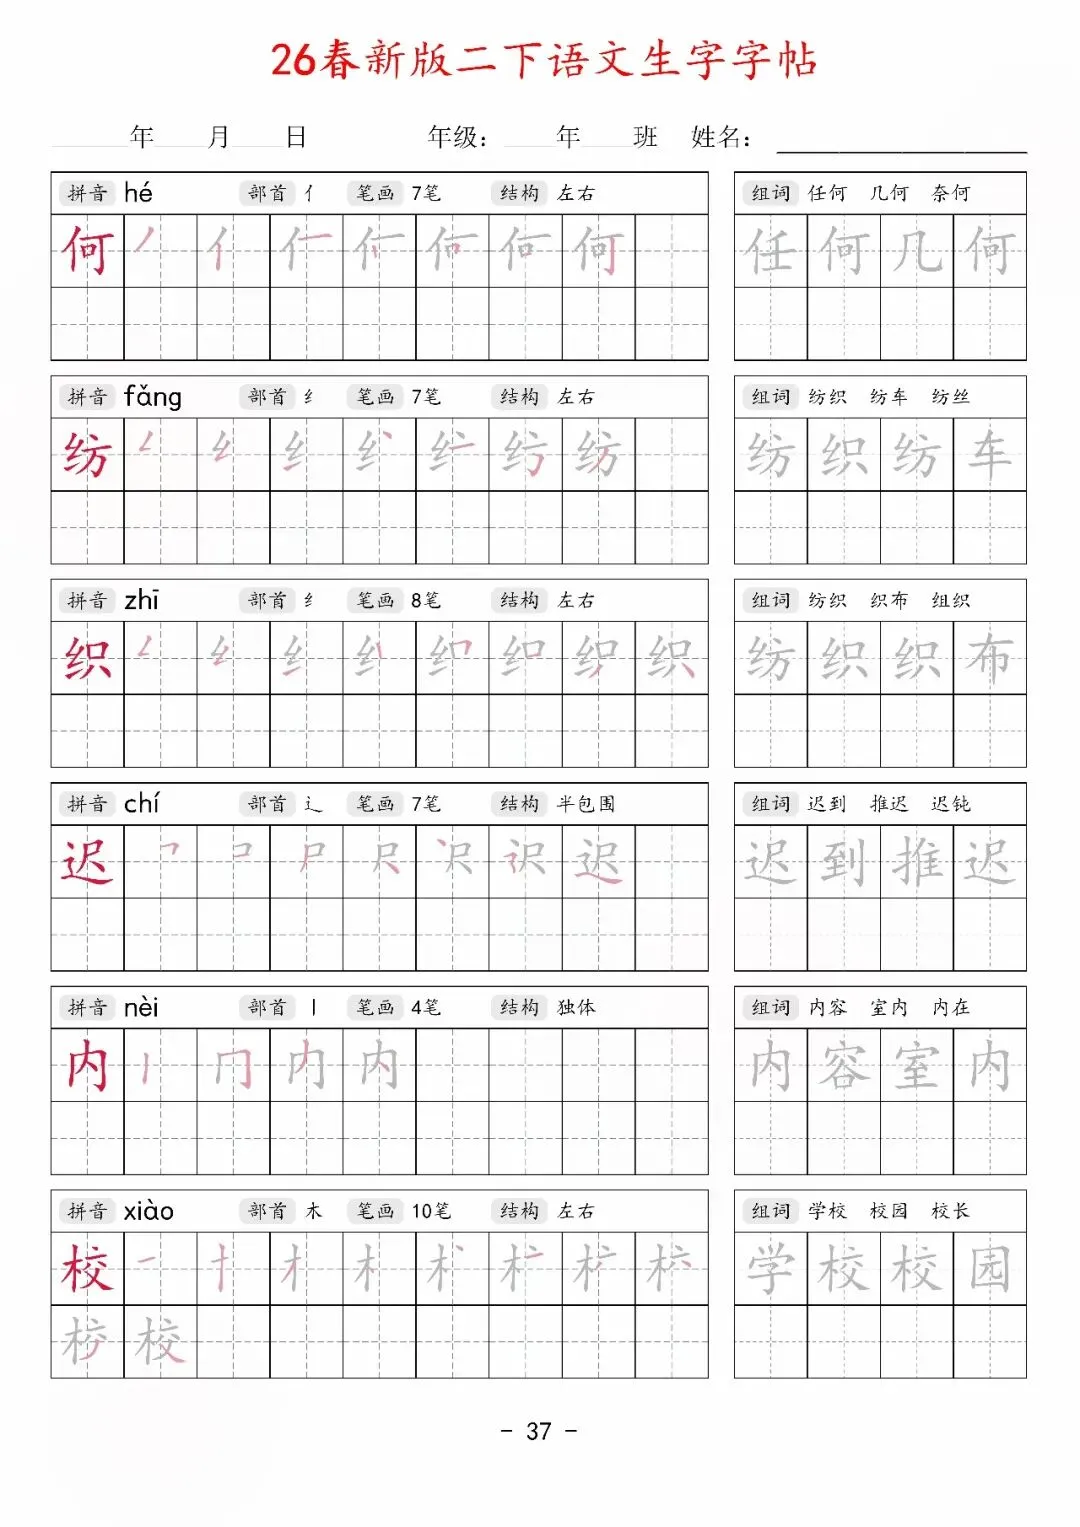 26春新版二下语文生字字帖
年 月 日 年级: 年 班 姓名:
拼音 hé 部首 亻 笔画 7笔 结构 左右 组词 任何 几何 奈何
何 任何几何
拼音 fǎng 部首 纟 笔画 7笔 结构 左右 组词 纺织 纺车 纺丝
纺 纺织纺车
拼音 zhī 部首 纟 笔画 8笔 结构 左右 组词 纺织 织布 组织
织 纺织织布
拼音 chí 部首 辶 笔画 7笔 结构 半包围 组词 迟到 推迟 迟钝
迟 迟到推迟
拼音 nèi 部首 丨 笔画 4笔 结构 独体 组词 内容 室内 内在
内 内容室内
拼音 xiào 部首 木 笔画 10笔 结构 左右 组词 学校 校园 校长
校 学校校园
校
- 37 -